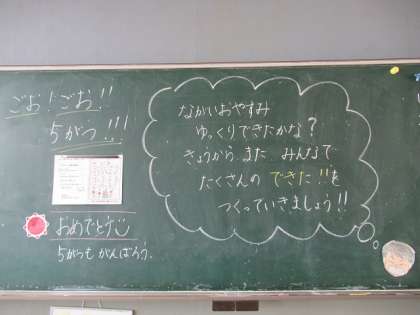 ごお！ごお!!
5がつ!!!
おめでとう
5がつも がんばろう.
ながいおやすみ
ゆっくりできたかな？
きょうから また みんなで
たくさんの できた!!を
つくっていきましょう!!